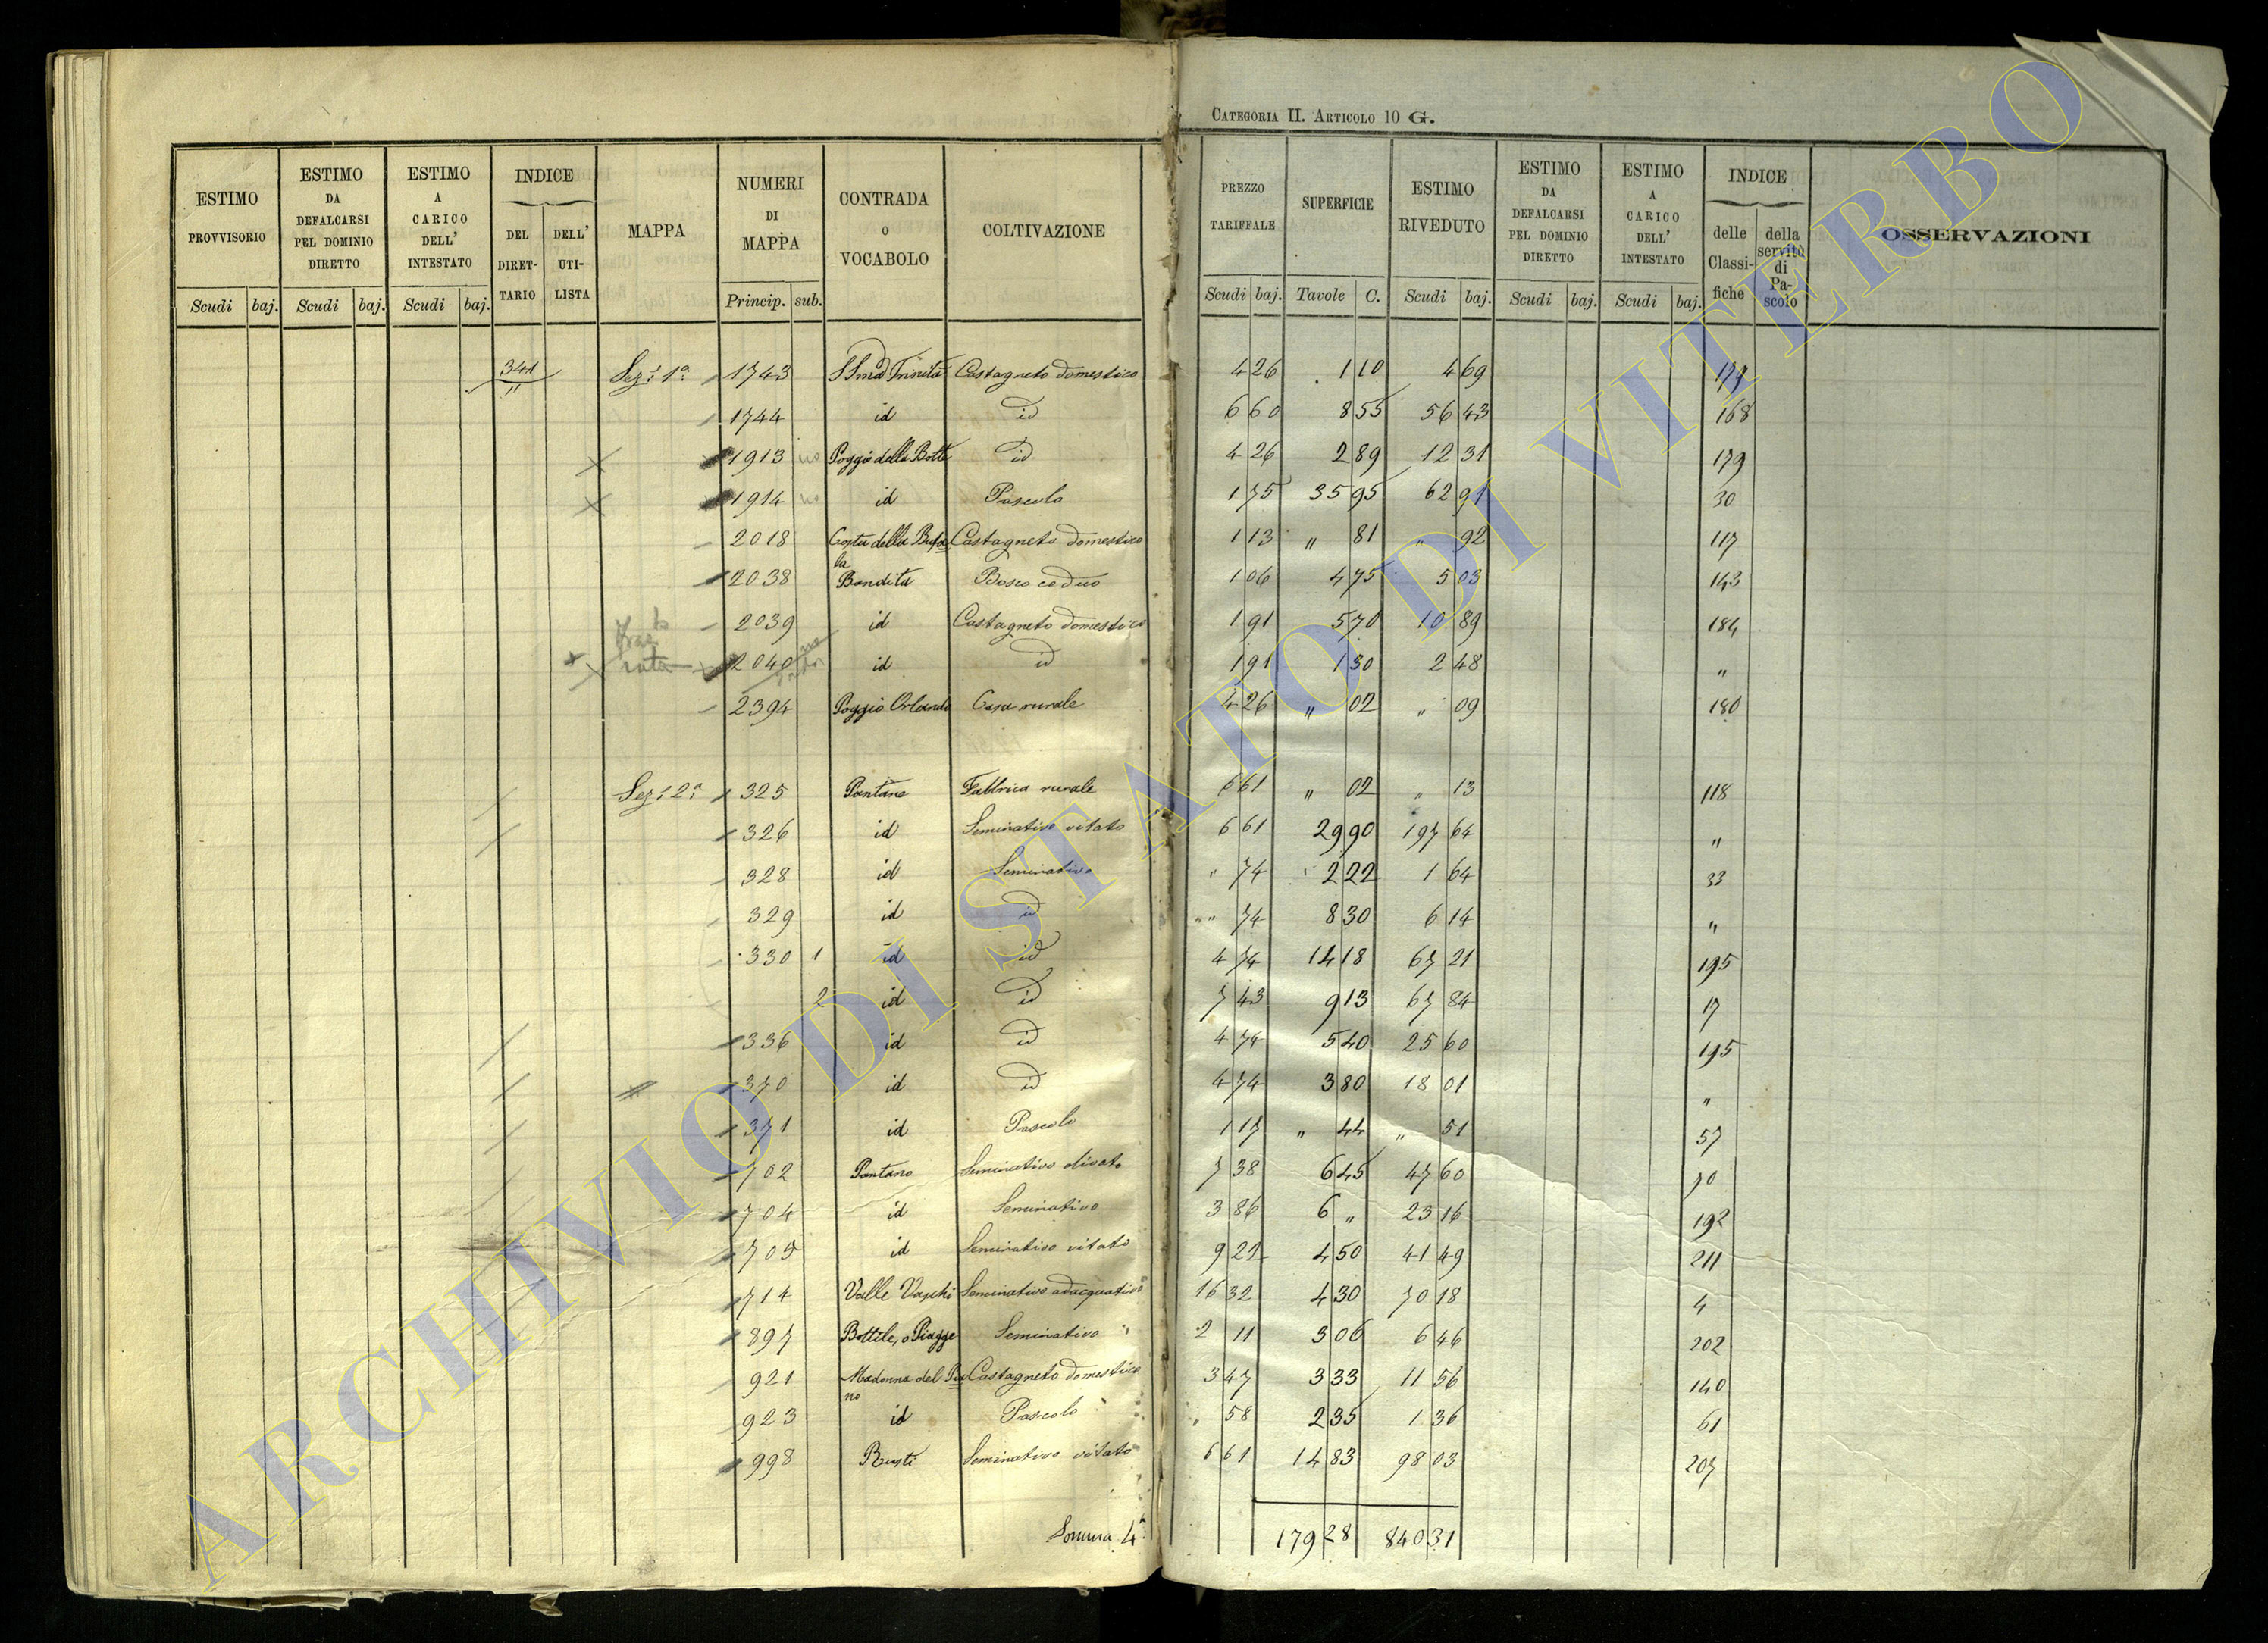 CATEGORIA II. ARTICOLO 10 G.
ESTIMO PROVVISORIO Scudi baj.
ESTIMO DA DEFALCARSI PEL DOMINIO DIRETTO Scudi baj.
ESTIMO A CARICO DELL' INTESTATO Scudi baj.
INDICE DEL DIRETTARIO DELL' UTILISTA
MAPPA
NUMERI DI MAPPA Princip. sub.
CONTRADA o VOCABOLO
COLTIVAZIONE
PREZZO TARIFFALE Scudi baj.
SUPERFICIE Tavole C.
ESTIMO RIVEDUTO Scudi baj.
ESTIMO DA DEFALCARSI PEL DOMINIO DIRETTO Scudi baj.
ESTIMO A CARICO DELL' INTESTATO Scudi baj.
INDICE delle Classifiche della servitù di Pascolo
OSSERVAZIONI
341 " Sez: 1a 1743 SSma Trinità Castagneto domestico 4 26 1 10 4 69 179
1744 id id 6 60 8 55 56 43 168
1913 no Poggio della Botte id 4 26 2 89 12 31 179
1914 no id Pascolo 1 75 35 95 62 91 30
2018 Costa della Bufala Castagneto domestico 1 13 " 81 " 92 117
2038 Bandita Bosco ceduo 1 06 4 75 5 03 143
2039 id Castagneto domestico 1 91 5 70 10 89 184
2040 id id 1 91 1 30 2 48 "
2394 Poggio Orlando Casa rurale 4 26 " 02 " 09 180
Sez: 2a 325 Pantano Fabbrica rurale 6 61 " 02 " 13 118
326 id Seminativo vitato 6 61 29 90 197 64 "
328 id Seminativo " 74 2 22 1 64 33
329 id id " 74 8 30 6 14 "
330 1 id id 4 74 14 18 67 21 195
2 id id 7 43 9 13 67 84 17
336 id id 4 74 5 40 25 60 195
370 id id 4 74 3 80 18 01 "
371 id Pascolo 1 17 " 44 " 51 57
702 Pantano Seminativo olivato 7 38 6 45 47 60 70
704 id Seminativo 3 86 6 " 23 16 192
705 id Seminativo vitato 9 22 4 50 41 49 211
714 Valle Vaschi Seminativo adacquativo 16 32 4 30 70 18 4
897 Bottile, o Piagge Seminativo 2 11 3 06 6 46 202
921 Madonna del Piano Castagneto domestico 3 47 3 33 11 56 140
923 id Pascolo " 58 2 35 1 36 61
998 Rusti Seminativo vitato 6 61 14 83 98 03 207
Somma 4a 179 28 840 31
ARCHIVIO DI STATO DI VITERBO